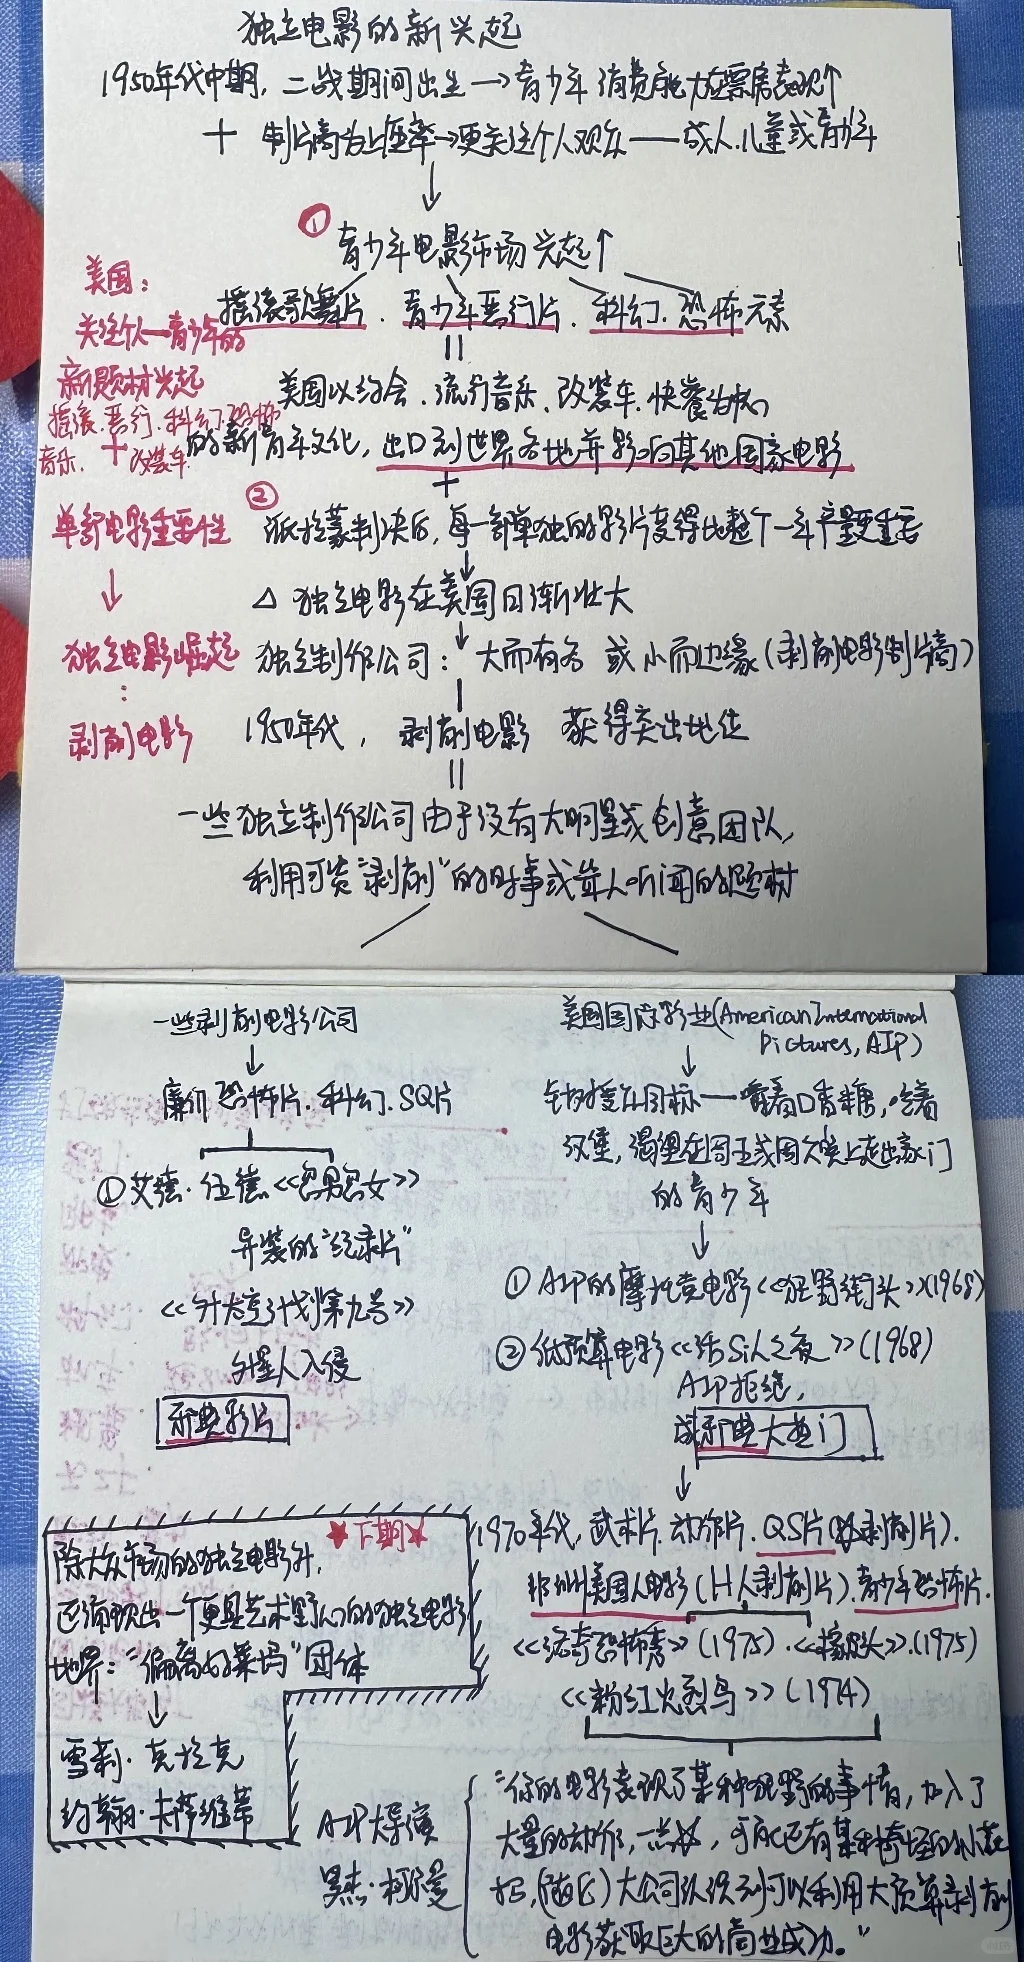 独立电影的新兴起
1950年代中期，二战期间出生→青少年消费能力在票房表现↑
＋ 制片商为上座率→更关注个人观众——成人.儿童或青少年
↓
① 青少年电影市场兴起↑
摇滚歌舞片、青少年恶行片、科幻、恐怖元素
美国以约会、流行音乐、改装车、快餐为核心
的新青年文化，出口到世界各地并影响其他国家电影
＋
② 派拉蒙判决后，每一部单独的影片变得比整个一年产量更重要
↓
△ 独立电影在美国日渐壮大
↓
独立制作公司：大而有名 或小而边缘（剥削电影制片商）
1950年代，剥削电影 获得突出地位
一些独立制作公司由于没有大明星或创意团队，
利用可资“剥削”的时事或耸人听闻的题材
美国：
关注个人—青少年的
新题材兴起
摇滚.恶行.科幻.恐怖
音乐. ＋ 改装车
单部电影重要性
↓
独立电影崛起
：
剥削电影
一些剥削电影公司
↓
廉价恐怖片.科幻.SQ片
①艾德·伍德《忽男忽女》
异装的“纪录片”
《外太空计划第九号》
外星人入侵
邪典影片
美国国际影业(American International
Pictures, AIP)
↓
针对授众目标——嚼着口香糖，吃着
汉堡，渴望在周五或周六晚上走出家门
的青少年
↓
①AIP的摩托党电影《狂野街头》(1968)
②低预算电影《活Si人之夜》(1968)
AIP拒绝，
成邪典大热门
↓
1970年代，武术片.动作片.QS片(性剥削片).
非洲美国人电影(H人剥削片).青少年恐怖片.
《洛奇恐怖秀》(1975).《橡皮头》.(1975)
《粉红火烈鸟》(1974)
AIP大导演
罗杰·柯尔曼
“你的电影表现了某种狂野的事情，加入了
大量的动作，一点性，可能还有某种奇怪的小花
招，(随后)大公司认识到可以利用大预算剥削
电影获取巨大的商业成功。”
★下期★
除大众市场的独立电影外，
还涌现出一个更具艺术野心的独立电影
世界：“偏离好莱坞”团体
↓
雪莉·克拉克
约翰·卡萨维蒂